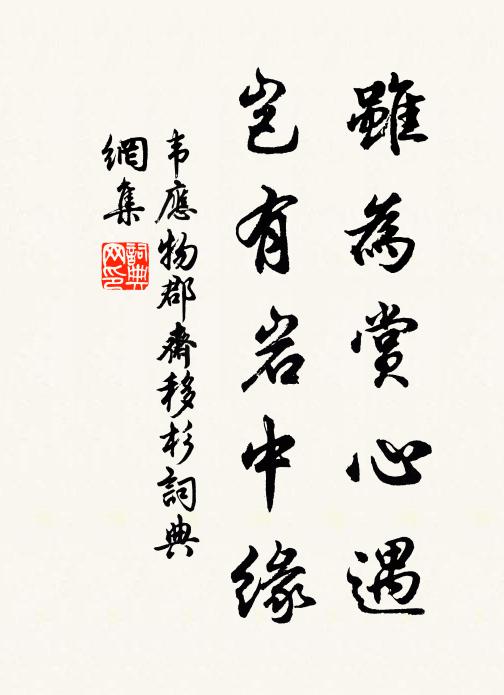 雖為賞心遇
豈有岩中緣
韦應物郡齋移杉詞典
網集
詞典网印